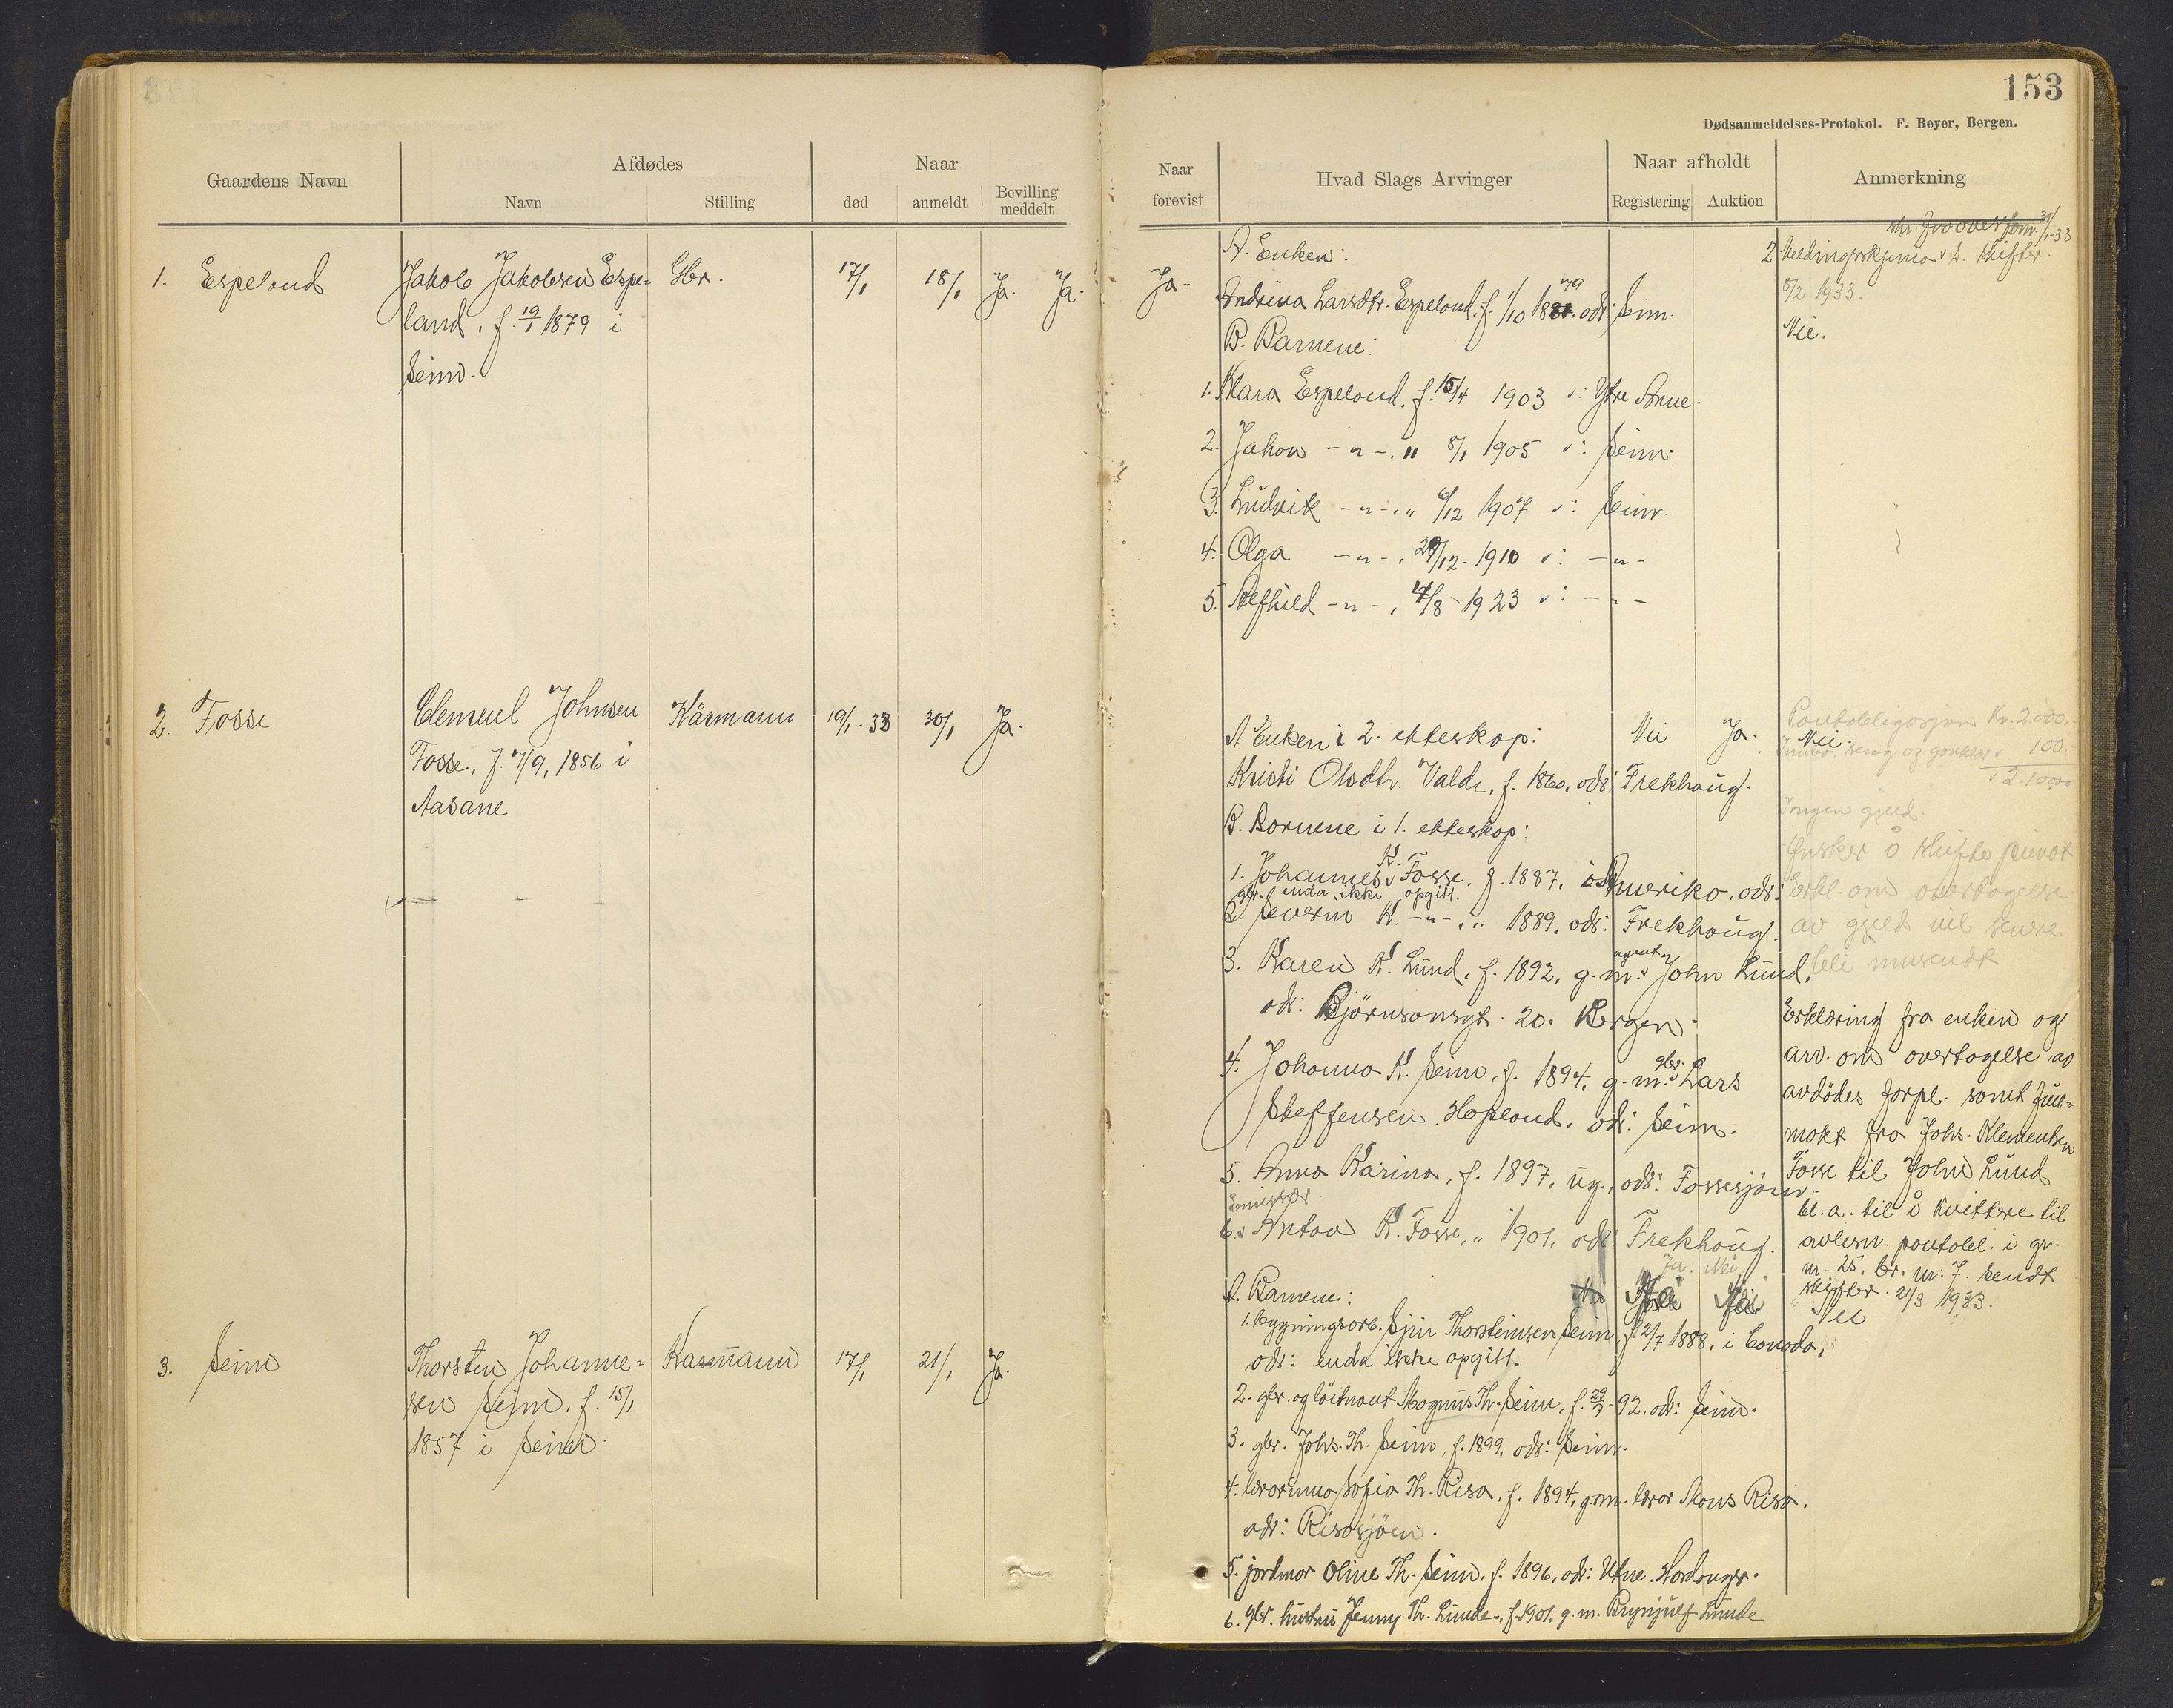 153
Dødsanmeldelses-Protokol. F. Beyer, Bergen.
Gaardens Navn
Afdødes
Navn
Stilling
Naar
død
anmeldt
Bevilling
meddelt
Naar
forevist
Hvad Slags Arvinger
Naar afholdt
Registering
Auktion
Anmerkning
1. Espeland
Jakob Jakobsen Espe-
land. f. 19/1 1879 i
Seim.
Gbr.
17/1
18/1
Ja.
Ja.
Ja.
A. Enken:
Andrina Larsdtr. Espeland. f. 1/10 1879. adr: Seim.
B. Barnene:
1. Klara Espeland. f. 15/4 1903 : Ytre Arne.
2. Jakon -"-. " 8/1 1905 : Seim.
3. Ludvik -"-. " 6/12 1907 : Seim.
4. Olga -"-. 29/12-1910 : -"-
5. Alfhild -"-. 14/8-1923 : -"-
31/1-33
2 Meldingsskjema s. skifter.
8/2 1933.
Nei.
2. Fosse
Clement Johnsen
Fosse, f. 7/9, 1856 i
Aasane
Kårmann
19/1-33
30/1
Ja.
A. Enken i 2. ekteskap:
Kristi Olsdtr. Valde, f. 1860. adr: Frekhaug.
Nei
Ja.
B. Barnene i 1. ekteskap:
1. Johannes K. Fosse. f. 1887. i Amerika. adr:
enda ikke opgitt.
2. gbr. Severin K. -"-. " 1889. adr: Frekhaug.
3. Karen K. Lund. f. 1892. g. m. agent John Lund.
adr: Bjørnsonsgt. 20. Bergen.
4. Johanna K. Seim. f. 1894. g. m. gbr. Lars
Steffensen Hopland. adr: Seim.
5. Anna Karina, f. 1897, ug., adr: Fossesjøen.
6. Anton K. Fosse, " 1901. adr: Frekhaug.
Pantobligasjon Kr. 2.000.-
Nei.
Innbo, seng og gankler 100.-
2.100,00
Ingen gjeld.
Ønsker å skifte privat
Erkl. om overtagelse
av gjeld vil senere
bli innsendt
Erklæring fra enken og
arv. om overtagelse av
avdødes forpl. samt full-
makt fra Johs. Klementsen
Fosse til John Lund
bl. a. til å kvittere til
avlesn. pantobl. i gr.
nr. 25. br. nr. 7. sendt
skifter. 21/3 1933.
Nei
3. Seim
Thorsten Johanne-
sen Seim. f. 15/1
1857 i Seim.
Kårmann
17/1
21/1
Ja.
Ja. Nei
A. Barnene:
1. bygningsarb. Sjur Thorsteinsen Seim, f. 2/7 1888. i Canada,
adr: enda ikke opgitt.
2. gbr. og løitnant Magnus Th. Seim, f. 29/7-92. adr: Seim.
3. gbr. Johs. Th. Seim, f. 1899. adr: Seim.
4. lærerinne Sofia Th. Risa, f. 1894, g.m. lærer Mons Risa.
adr: Risasjøen.
5. jordmor Oline Th. Seim. f. 1896. adr: Utne. Hardanger.
6. gbr. hustru Jenny Th. Lunde, f. 1901, g. m. Brynjulf Lunde